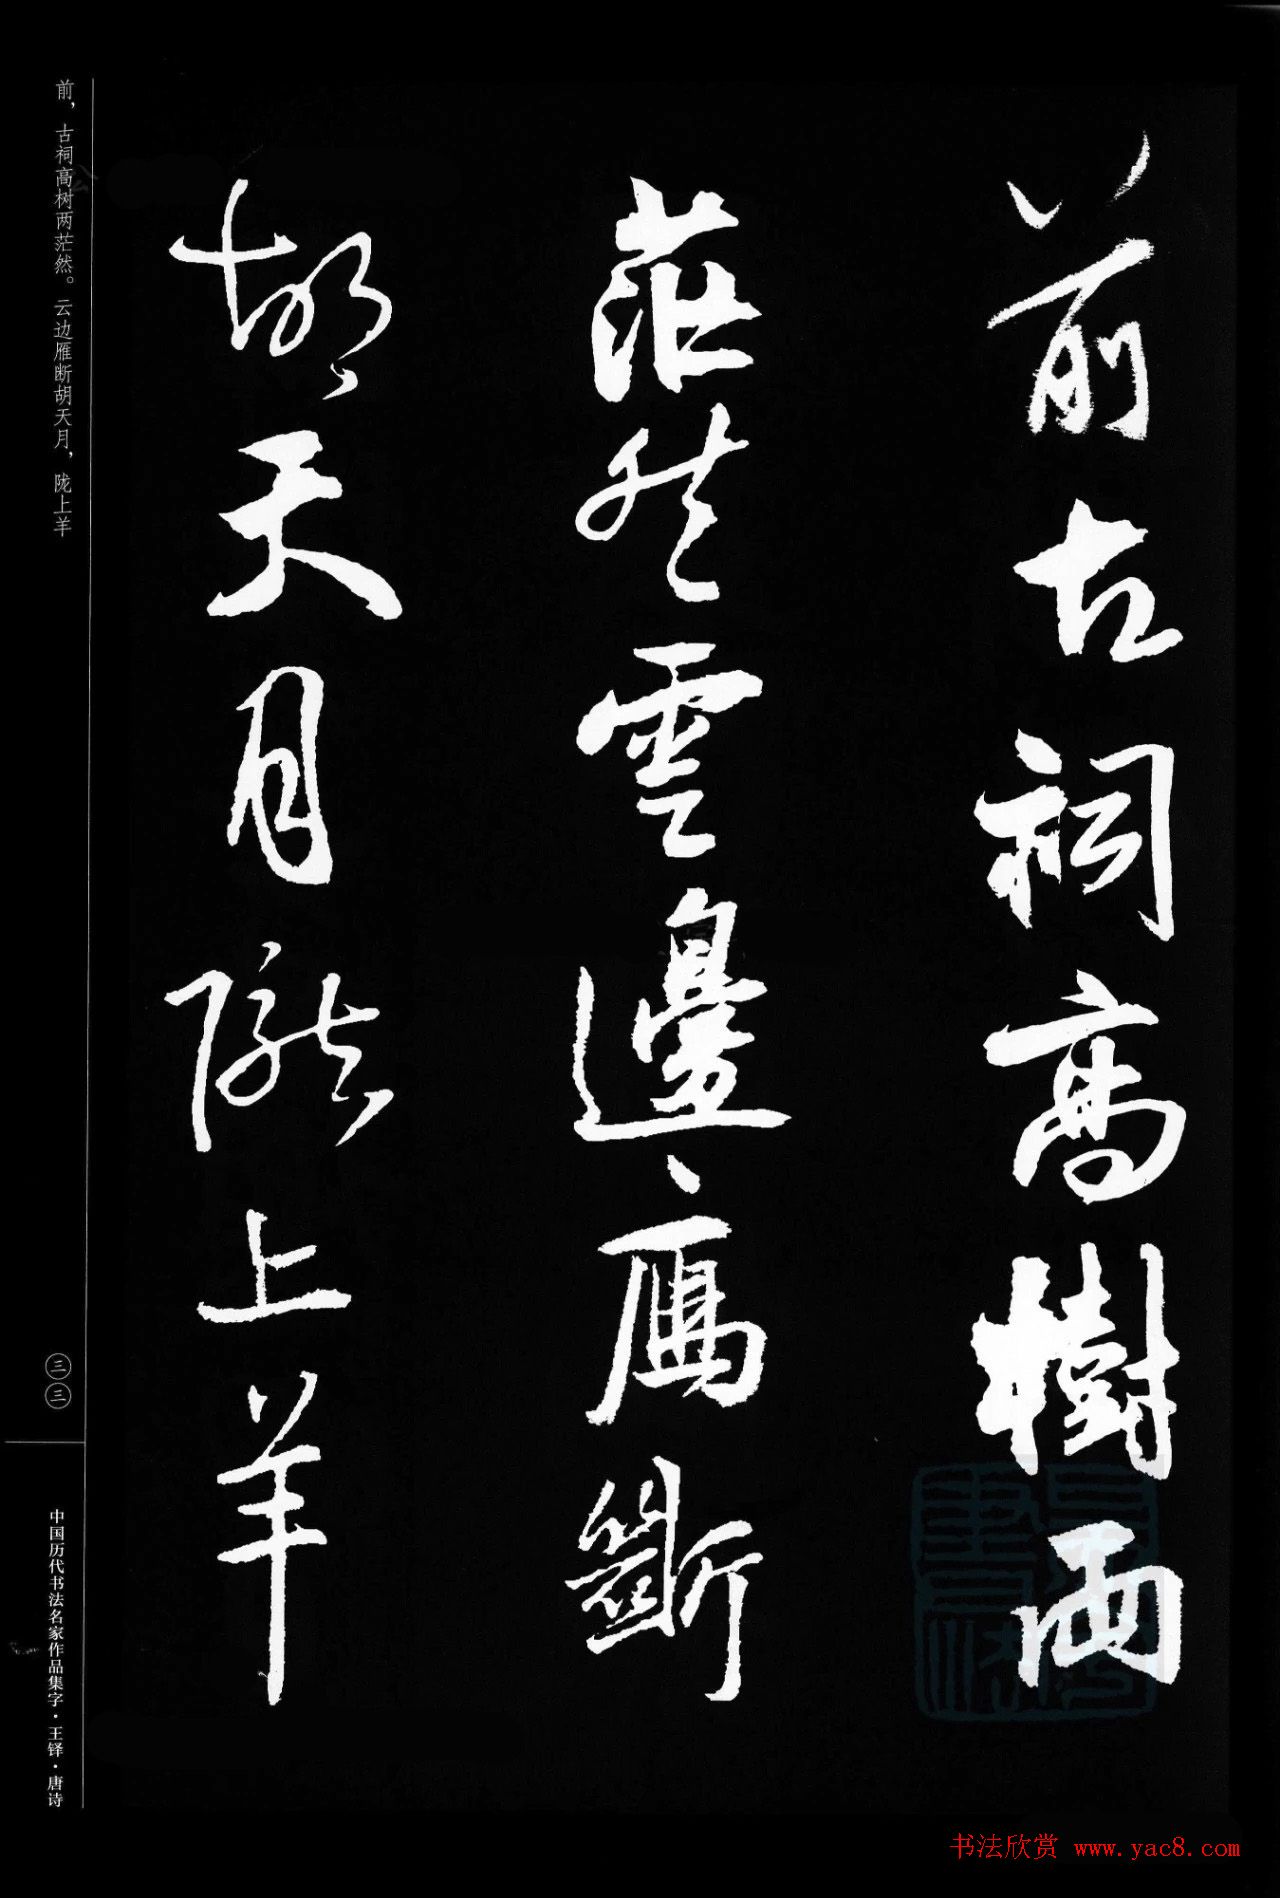 前古祠高樹兩
茫然雲邊雁斷
胡天月隴上羊
前，古祠高树两茫然。云边雁断胡天月，陇上羊
三三
中国历代书法名家作品集字·王铎·唐诗
书法欣赏 www.yac8.com